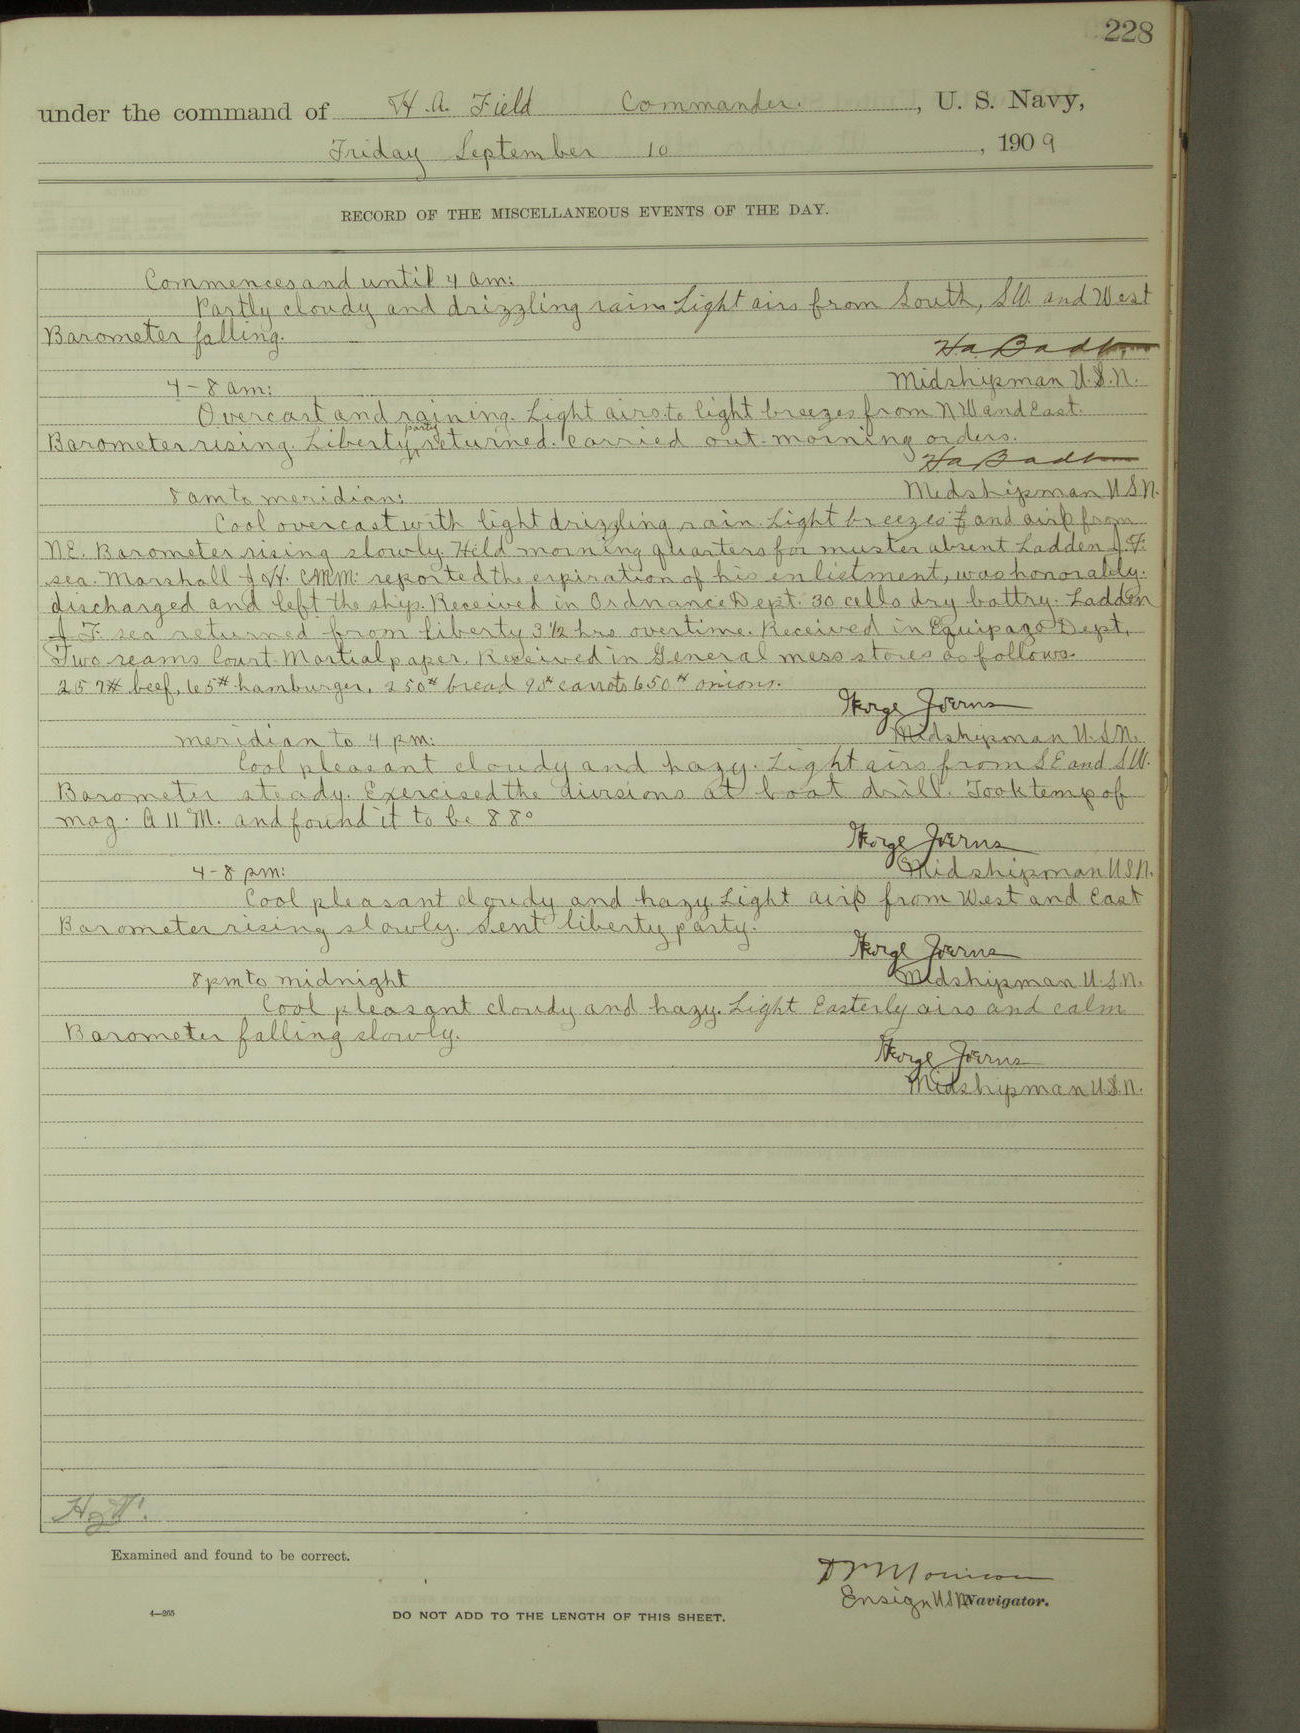 228
under the command of H. A. Field Commander. , U. S. Navy,
Friday September 10 , 1909
RECORD OF THE MISCELLANEOUS EVENTS OF THE DAY.
Commences and until 4 am:
Partly cloudy and drizzling rain. Light airs from South, SW. and West
Barometer falling.
Midshipman U.S.N.
4 - 8 am:
Overcast and raining. Light airs to light breezes from NW and East.
Barometer rising. Liberty party returned. Carried out morning orders.
Midshipman U S N.
8 am to meridian:
Cool overcast with light drizzling rain. Light breezes and airs from
N.E. Barometer rising slowly. Held morning quarters for muster absent Ladden J. F.
sea. Marshall J. H. C.M.M. reported the expiration of his enlistment, was honorably
discharged and left the ship. Received in Ordnance Dept. 30 cells dry battry. Ladden
J. F. sea returned from liberty 3 1/2 hrs overtime. Received in Equipage Dept.
Two reams Court Martial paper. Received in General mess stores as follows.
257# beef, 65# hamburger, 250# bread 90# carrots 650# onions.
George Joerns
Midshipman U.S.N.
meridian to 4 pm:
Cool pleasant cloudy and hazy. Light airs from SE and SW.
Barometer steady. Exercised the divisions at boat drill. Took temp of
mag. A 11 M. and found it to be 88°
George Joerns
Midshipman U.S.N.
4 - 8 pm:
Cool pleasant cloudy and hazy. Light airs from West and East
Barometer rising slowly. Sent liberty party.
George Joerns
Midshipman U.S.N.
8 pm to midnight
Cool pleasant cloudy and hazy. Light Easterly airs and calm
Barometer falling slowly.
George Joerns
Midshipman U.S.N.
Examined and found to be correct.
Ensign U S N Navigator.
4—265
DO NOT ADD TO THE LENGTH OF THIS SHEET.